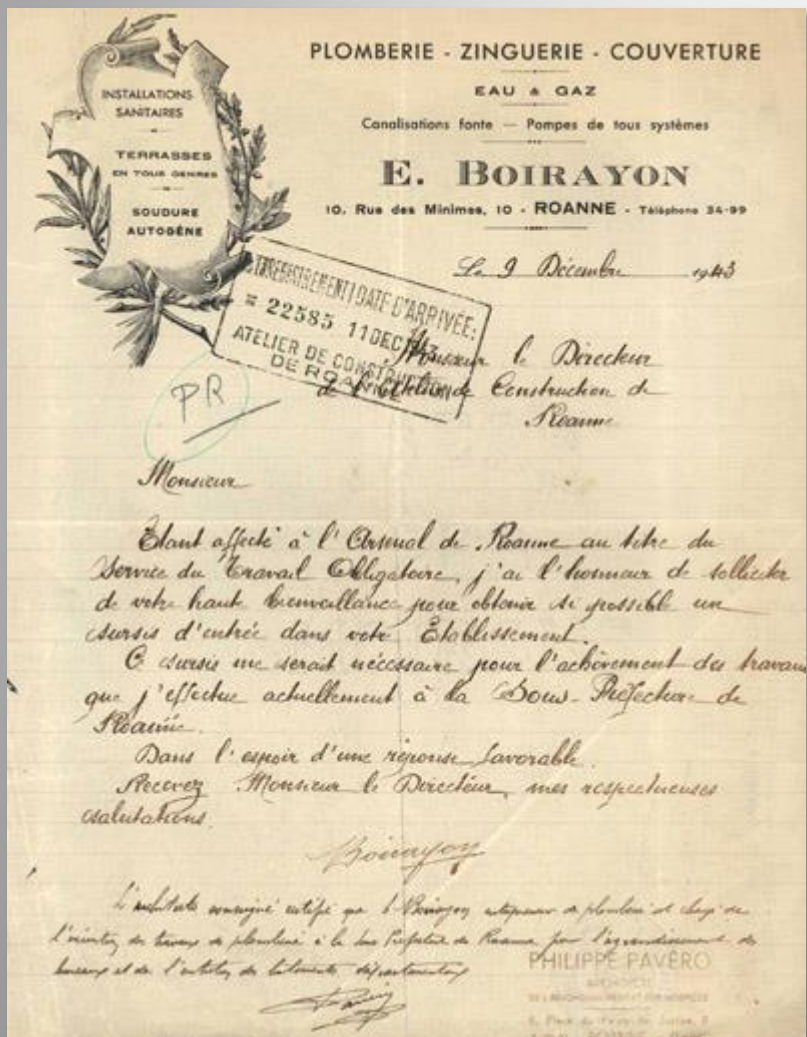 INSTALLATIONS
SANITAIRES
TERRASSES
EN TOUS GENRES
SOUDURE
AUTOGÈNE
PLOMBERIE - ZINGUERIE - COUVERTURE
EAU & GAZ
Canalisations fonte — Pompes de tous systèmes
E. BOIRAYON
10, Rue des Minimes, 10 - ROANNE - Téléphone 34-99
Le 9 Décembre 1943
ENREGISTREMENT DATE D'ARRIVÉE:
22585 11 DEC
ATELIER DE CONSTRUCTION
DE ROANNE
PR
Monsieur le Directeur
de l'Atelier de Construction de
Roanne
Monsieur
Etant affecté à l'Arsenal de Roanne au titre du
Service du Travail Obligatoire, j'ai l'honneur de solliciter
de votre haute bienveillance pour obtenir si possible un
sursis d'entrée dans votre Établissement.
Ce sursis me serait nécessaire pour l'achèvement des travaux
que j'effectue actuellement à la Sous-Préfecture de
Roanne.
Dans l'espoir d'une réponse favorable.
Recevez Monsieur le Directeur, mes respectueuses
salutations.
Boirayon
L'architecte soussigné certifie que Boirayon entrepreneur de plomberie est chargé de
l'exécution des travaux de plomberie à la Sous Préfecture de Roanne pour l'agrandissement des
bureaux et de l'entretien des bâtiments départementaux
PHILIPPE PAVÉRO
ARCHITECTE
ROANNE